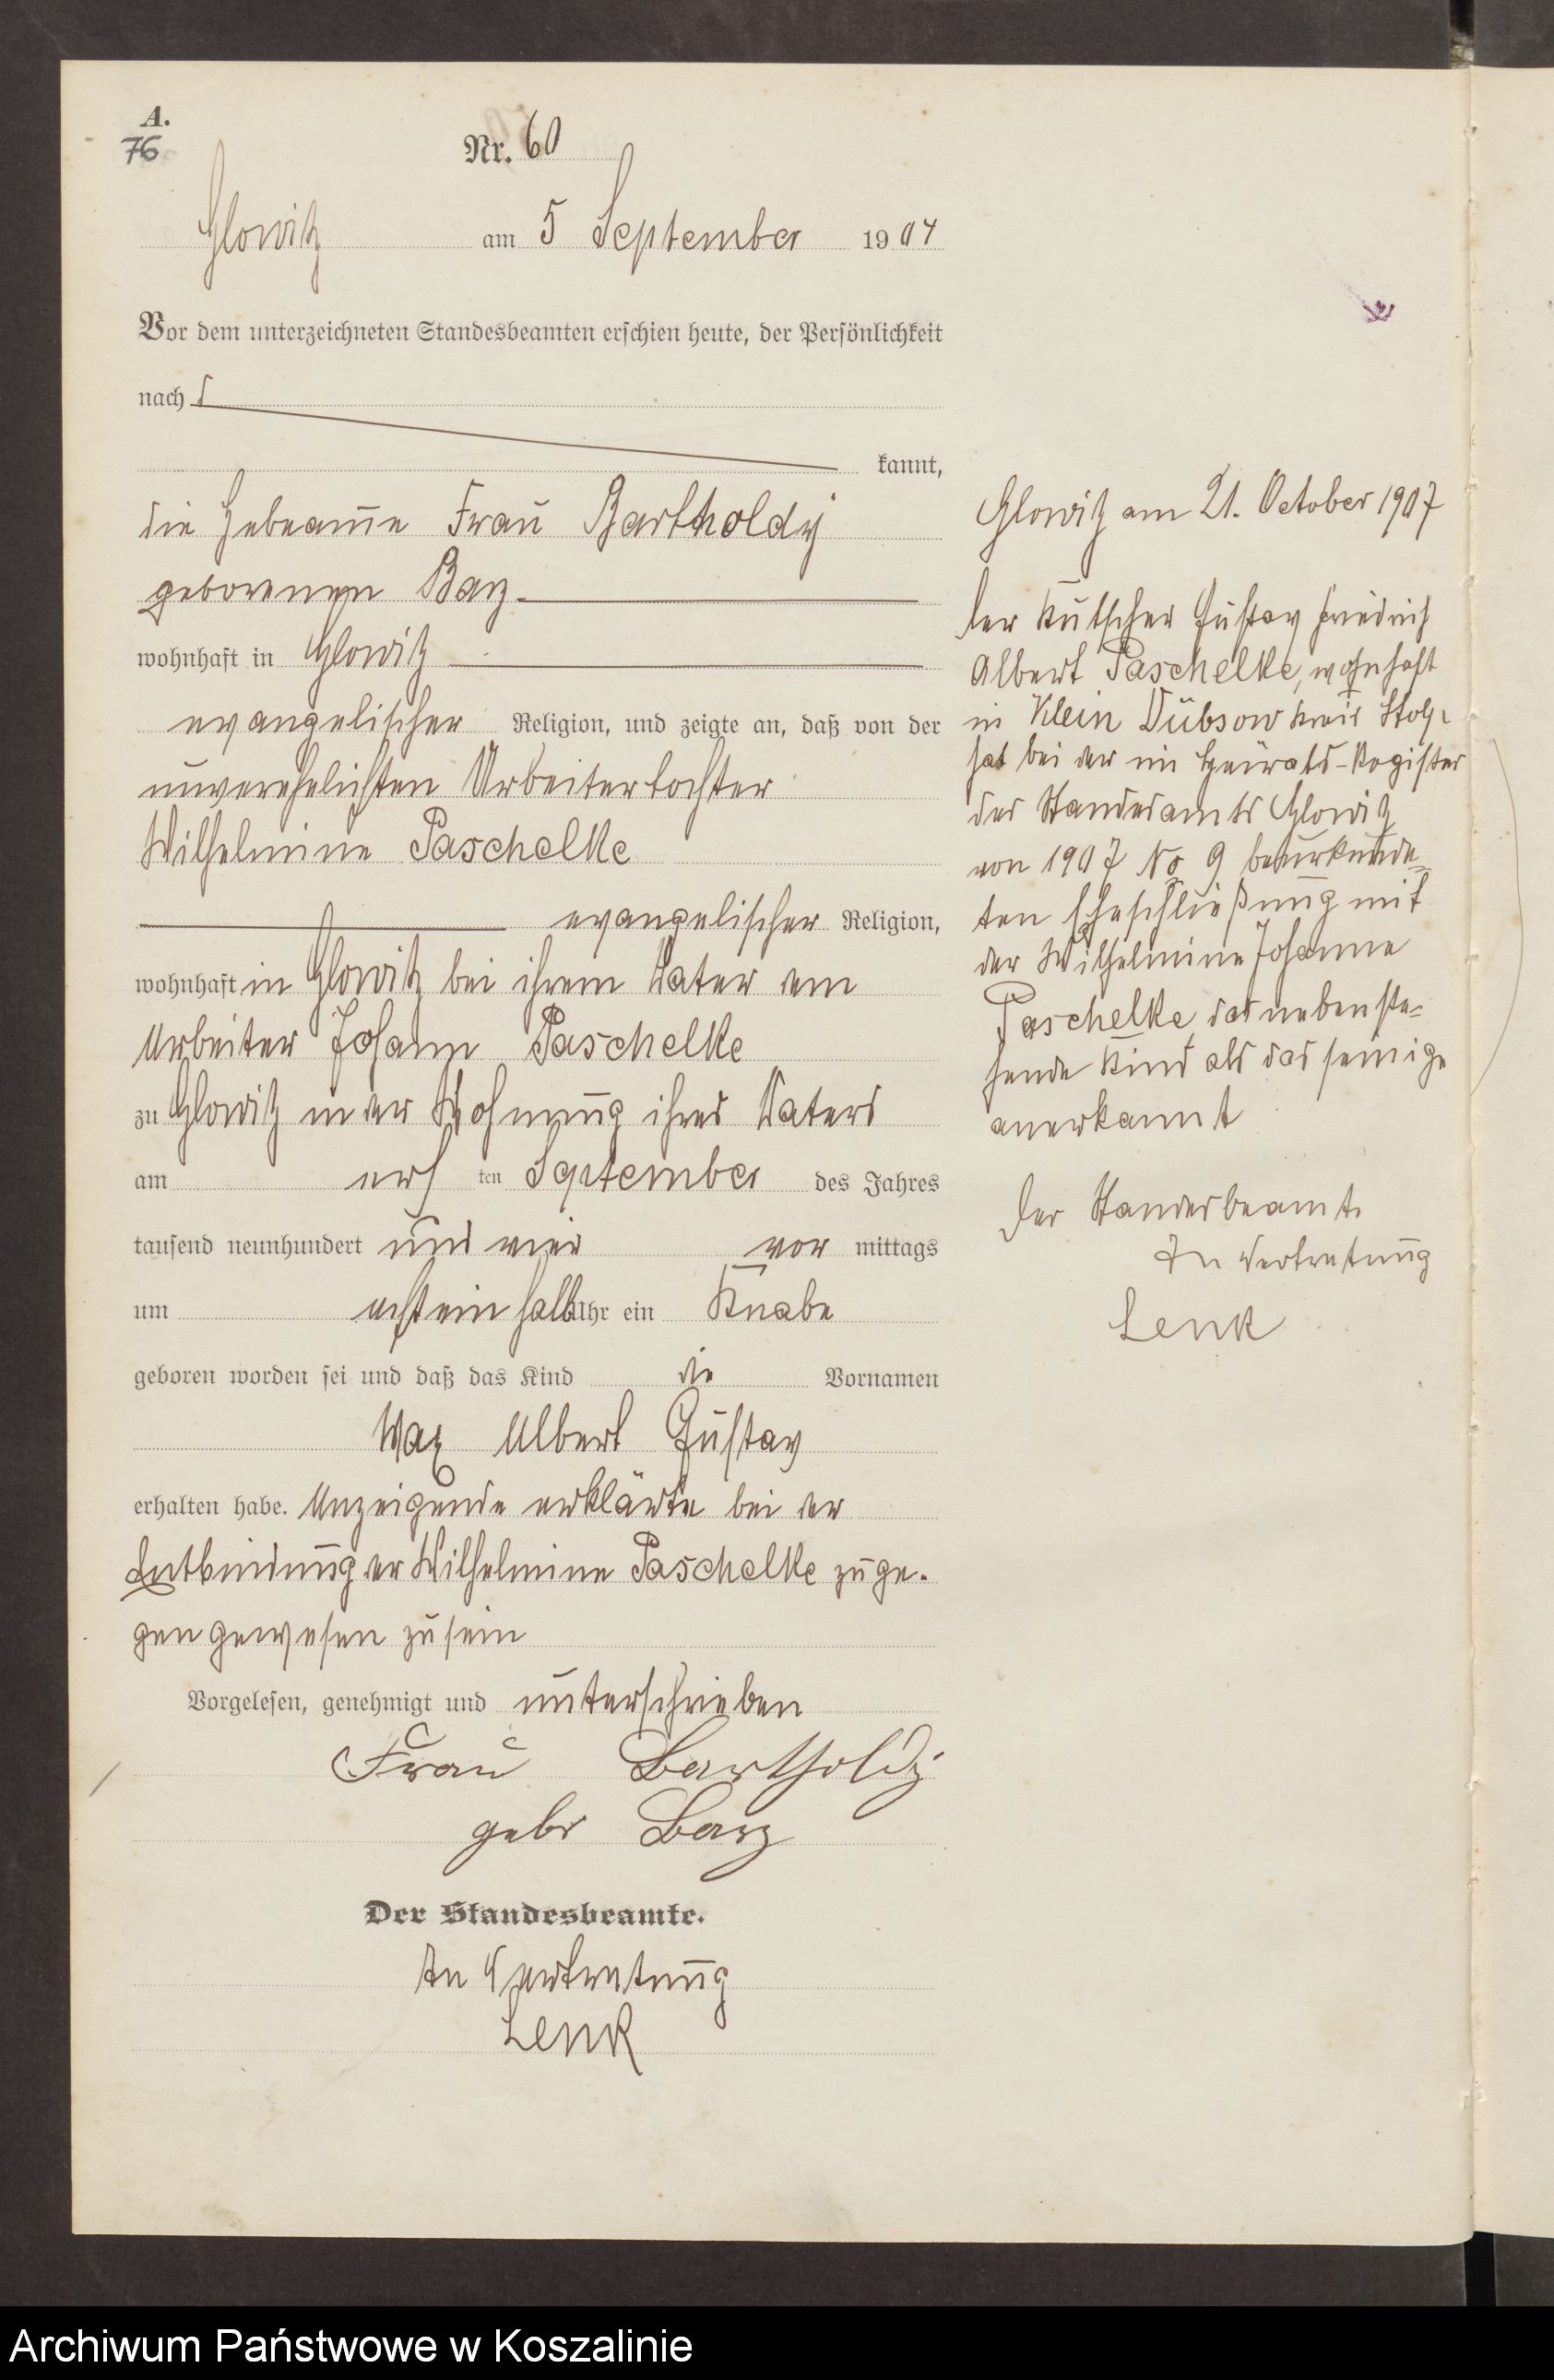 A.
76
Nr. 60
Glowitz am 5 September 1904
Vor dem unterzeichneten Standesbeamten erschien heute, der Persönlichkeit
nach
kannt,
die Hebeamme Frau Bartholdy
geborenen Barz
wohnhaft in Glowitz
evangelischer Religion, und zeigte an, daß von der
unverehelichten Arbeitertochter
Wilhelmine Paschelke
evangelischer Religion,
wohnhaft in Glowitz bei ihrem Vater dem
Arbeiter Johann Paschelke
zu Glowitz in der Wohnung ihres Vaters
am ersten September des Jahres
tausend neunhundert und vier vormittags
um achteinhalb Uhr ein Knabe
geboren worden sei und daß das Kind die Vornamen
Max Albert Gustav
erhalten habe. Anzeigende erklärte bei der
Entbindung der Wilhelmine Paschelke zuge-
gen gewesen zu sein
Vorgelesen, genehmigt und unterschrieben
Frau Bartholdy
gebr Barz
Der Standesbeamte.
In Vertretung
Lenk
Glowitz am 21. October 1907
Der Kutscher Gustav Friedrich
Albert Paschelke, wohnhaft
in Klein Dübsow Kreis Stolp
hat bei der im Heirats-Register
des Standesamts Glowitz
von 1907 No 9 beurkunde-
ten Eheschließung mit
der Wilhelmine Johanne
Paschelke das nebenste-
hende Kind als das seinige
anerkannt
Der Standesbeamte
In Vertretung
Lenk
Archiwum Państwowe w Koszalinie